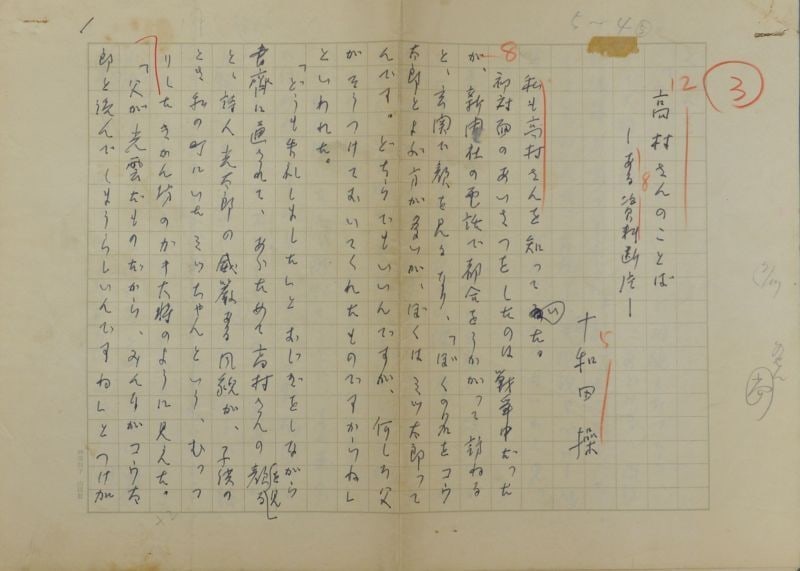 ③
12
高村さんのことば
8
―ある資料断片―
5
十和田操
私も高村さんを知っていた。
8
初対面のあいさつをしたのは戦争中だった
が、新聞社の電話で都合をうかがって訪ねる
と、玄関で顔を見るなり、「ぼくの名をコウ
太郎とよぶ方が多いが、ぼくはミツ太郎って
んです。どちらでもいいんですが、何しろ父
がそうつけておいてくれたものですからね」
といわれた。
「どうも失礼しました」とおじぎをしながら
書斎に通されて、あらためて高村さんの顔を見
と、詩人光太郎の威厳ある風貌が、子供の
とき私の町にいたミッちゃんという、むっつ
りしたきかん坊のガキ大将のように見えた。
「父が光雲なものだから、みんながコウ太
郎と読んでしまうらしいんですね」とつけ加
5～4